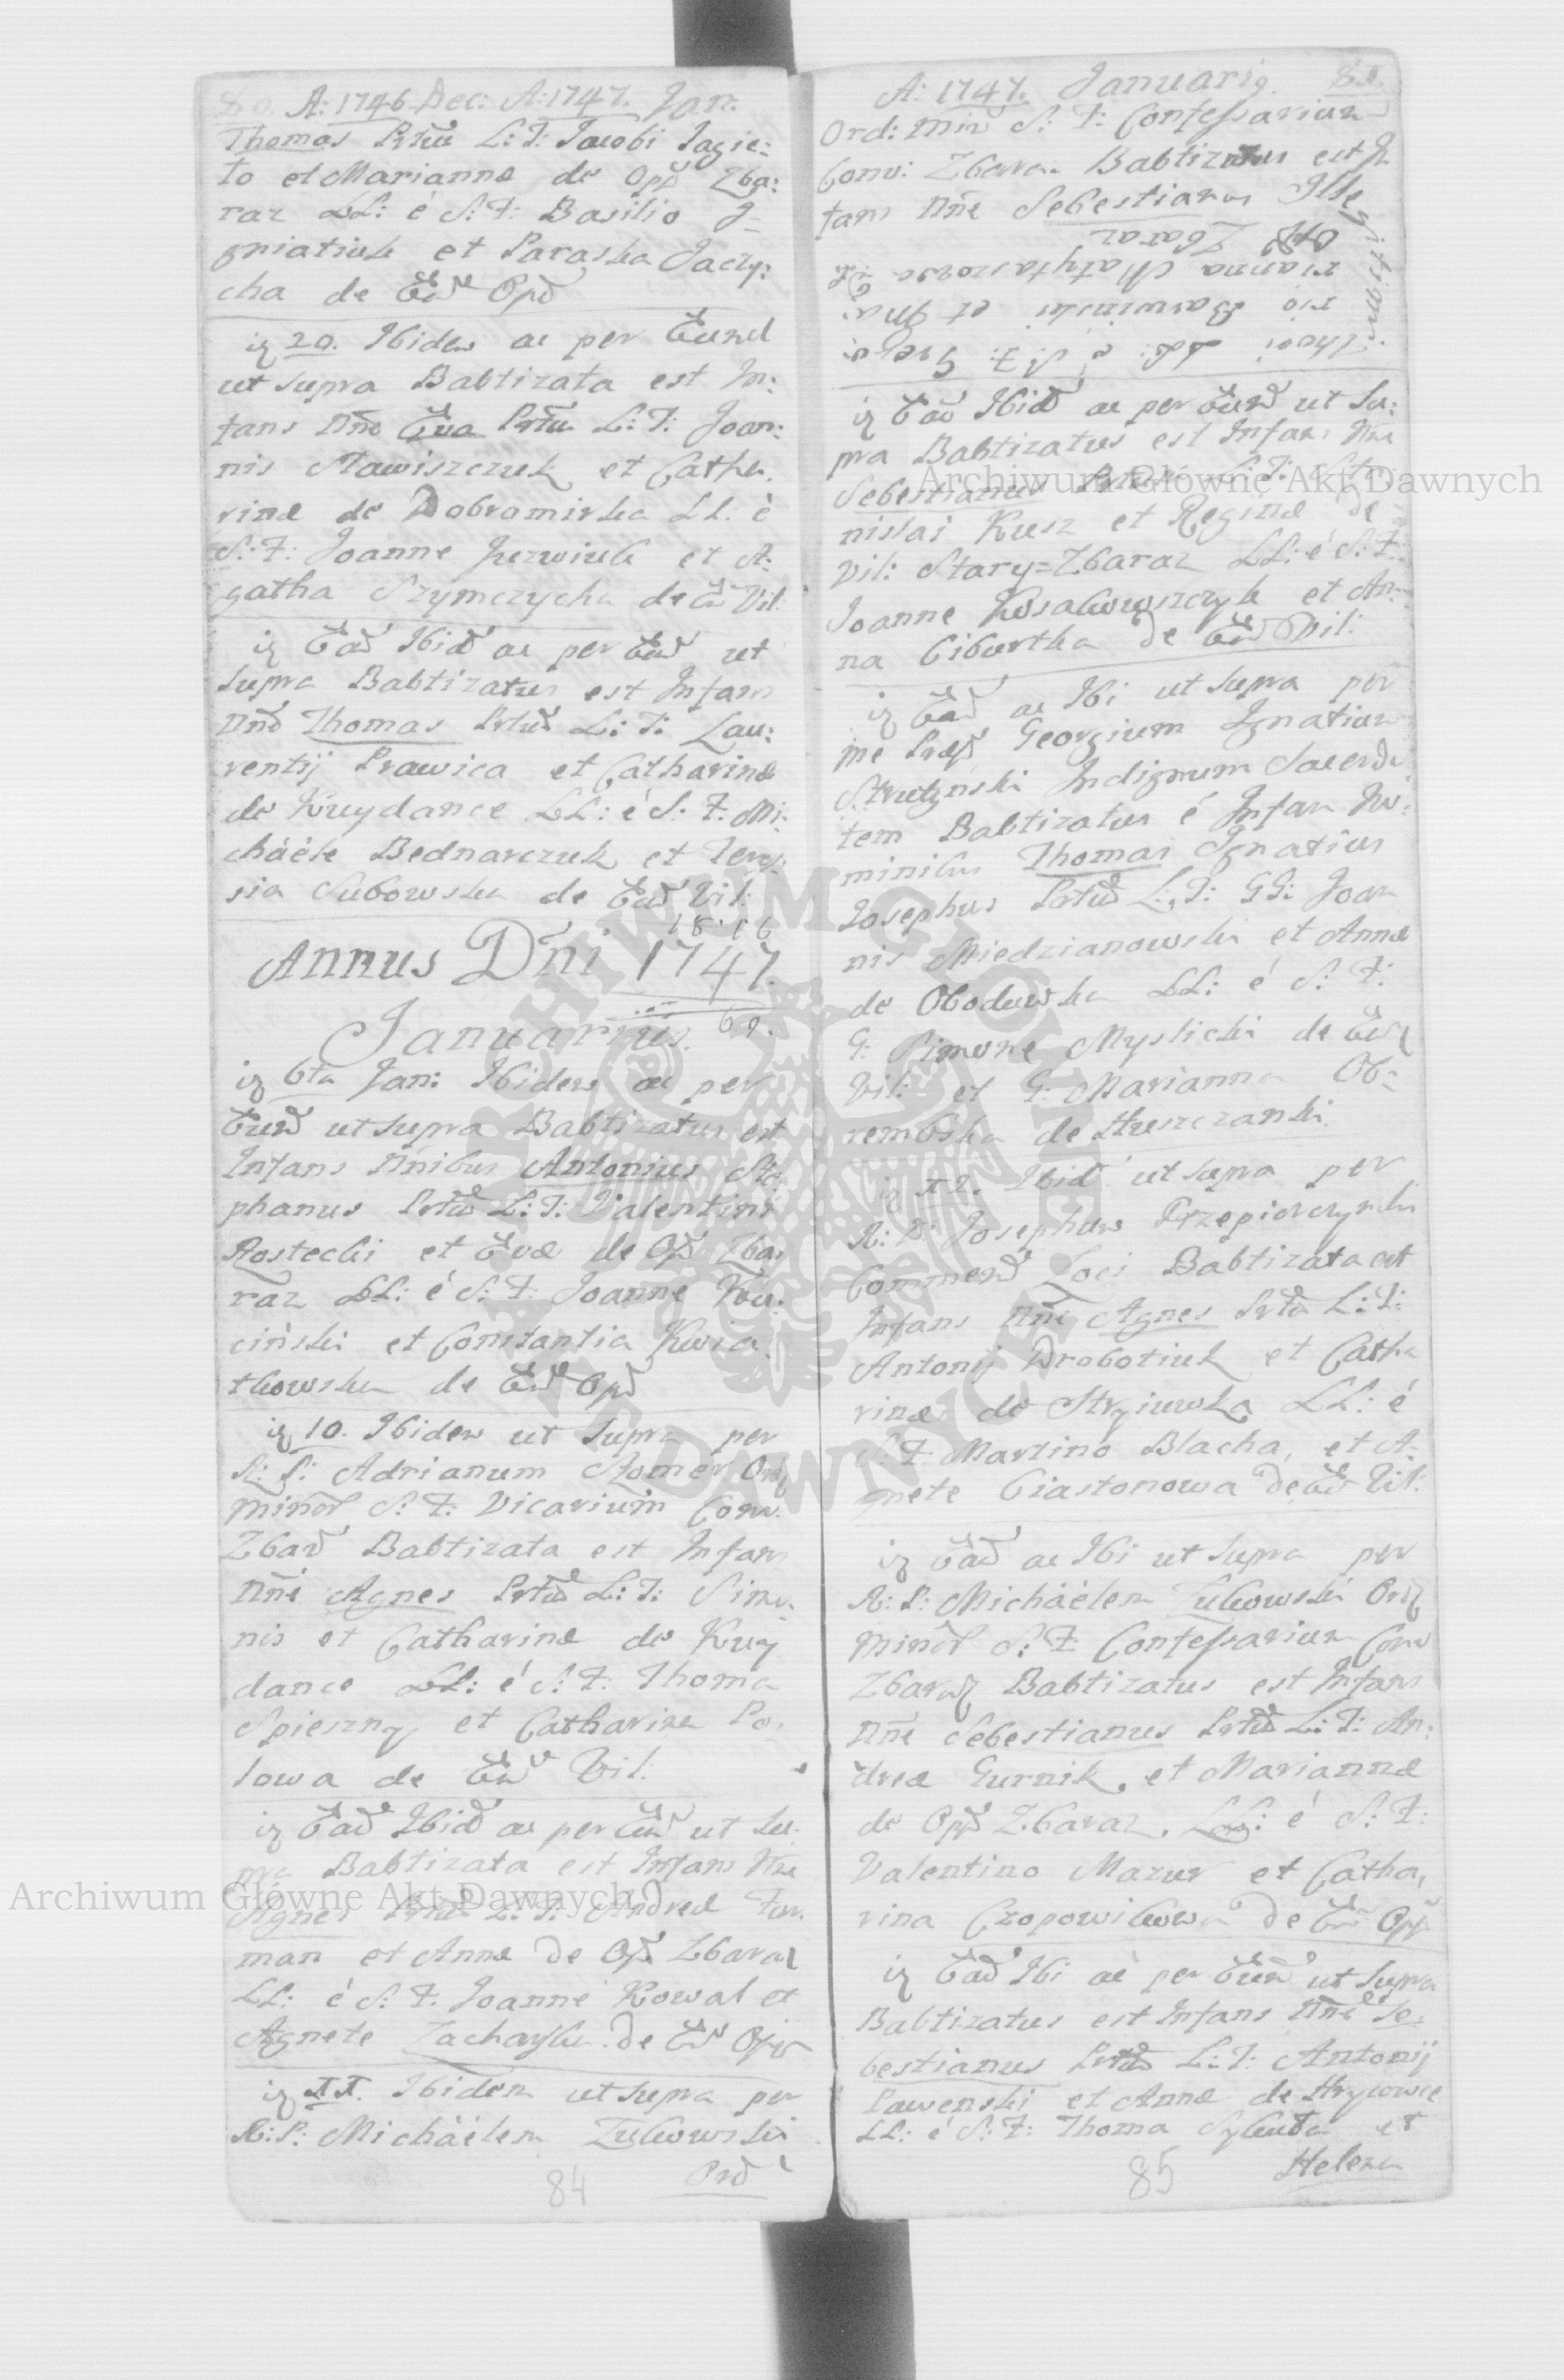 80. A: 1746. Dec: A: 1747. Jan.
Thomas L: T: Jacobi Jagie:
to et Marianna de Opp Zba:
raz LL: è S: F: Basilio J-
gniatiuk et Paraska Jaczy:
cha de Opd
20. Ibidem ac per Eund
ut supra Babtizata est In:
fans Nne Eva L: T: Joan:
nis Sławiszczuk et Catha:
rinæ de Dobromirka LL. è
S: F: Joanne et A:
gatha Szymczycha de Vil:
Ead Ibid ac per ut
supra Babtizatus est Infans
Thomas L: T: Lau:
rentij Prawica et Catharinæ
de Kuydance LL: è S: F: Mi:
chäéle Bednarczuk et
sia de Ead Vil:
Annus Dni 1747.
Januarius. 69.
6ta Jan: Ibidem ac per
Eund ut supra Babtizatus est
Infans Nnibus Antonius Ste
phanus L: T: Valentini
Rostecki et Evæ de Opp Zba:
raz LL: è S: F: Joanne Ku:
ciński et Constantia Kwia
tkowska de Opd
10. Ibidem ut supra per
R: P: Adrianum Ord
Minor S: F: Vicarium Conv.
Zbar Babtizata est Infans
Nne Agnes L: T: Simo:
nis et Catharinæ de Kuy
dance LL: è S: F: Thoma
Spieszny et Catharina Po:
lowa de Vil:
Ead Ibid ac per ut su:
pra Babtizata est Infans Nne
Agnes L: T: Andreæ Fur:
man et Annæ de Opp Zbaraz
LL: è S: F. Joanne Kowal et
Agnete de Opp
II. Ibidem ut supra per
R: P: Michäélem Zulkowski
Ord
84
A: 1747. Januarig. 81.
Ord: Min S: F: Confessarium
Conv: Zbara: Babtizatus est In
fans Nne Sebestianus Ille
gitimi
thori LL: è S: F: Grego:
rio et Ma:
rianna
Opp Zbaraz
Ead Ibid ac per Eund ut su:
pra Babtizatus est Infans Nne
Sebestianus L: T: Sta:
nislai Kusz et Reginæ de
Vil: Stary=Zbaraz LL: è S: F:
Joanne et An:
na de Ead Vil:
Ead ac Ibi ut supra per
me Georgium Ignatium
Indignum Sacerdo
tem Babtizatus é Infans No:
minibus Thomas Ignatius
Josephus L: T: GG: Joan
nis Miedzianowski et Annæ
de Obodowka LL: è S: F:
G: Simone Myslicki de
Vil: et G: Marianna Ob:
rembska de Huszczanki.
Ibid ut supra per
R: D: Josephum Przepiorczynski
Commend Loci Babtizata est
Infans Nne Agnes L: T:
Antonij Drobotiuk et Catha
rinæ de Stryiuwka LL: è
S: F: Martino Blacha, et A:
gnete Ciastonowa de Vil:
Ead ac Ibi ut supra per
R: P: Michäélem Zulkowski Ord
Minor S: F: Confessarium Conv
Zbaraz Babtizatus est Infans
Nne Sebestianus L: T: An:
dreæ Gurnik, et Mariannæ
de Opp Zbaraz. LL: è S: F:
Valentino Mazur et Catha,
rina Czopowikowa de Opp
Ead Ibi ac per Eund ut supra
Babtizatus est Infans Nne Se:
bestianus L: T: Antonij
Pawenski et Annæ de Hrycowce
LL: è S: F: Thoma et
Helena
85
Archiwum Główne Akt Dawnych
Archiwum Główne Akt Dawnych
ARCHIWUM GŁÓWNE AKT DAWNYCH